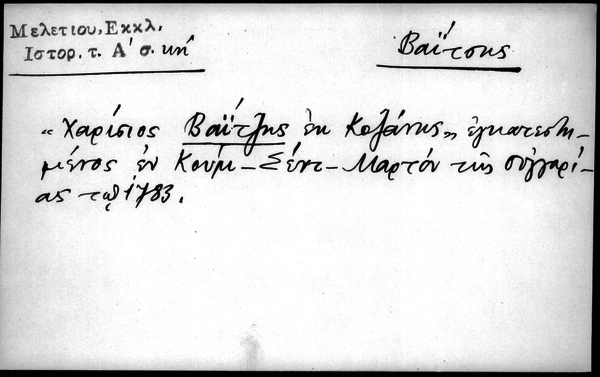 Μελετίου, Εκκλ.
Ιστορ. τ. Α' σ. κη'
Βαΐτσης
«Χαρίσιος Βαΐτζης ἐκ Κοζάνης» ἐγκατεστη-
μένος ἐν Κούμ-Σέντ-Μαρτόν τῆς οὑγγαρί-
ας τῷ 1783.